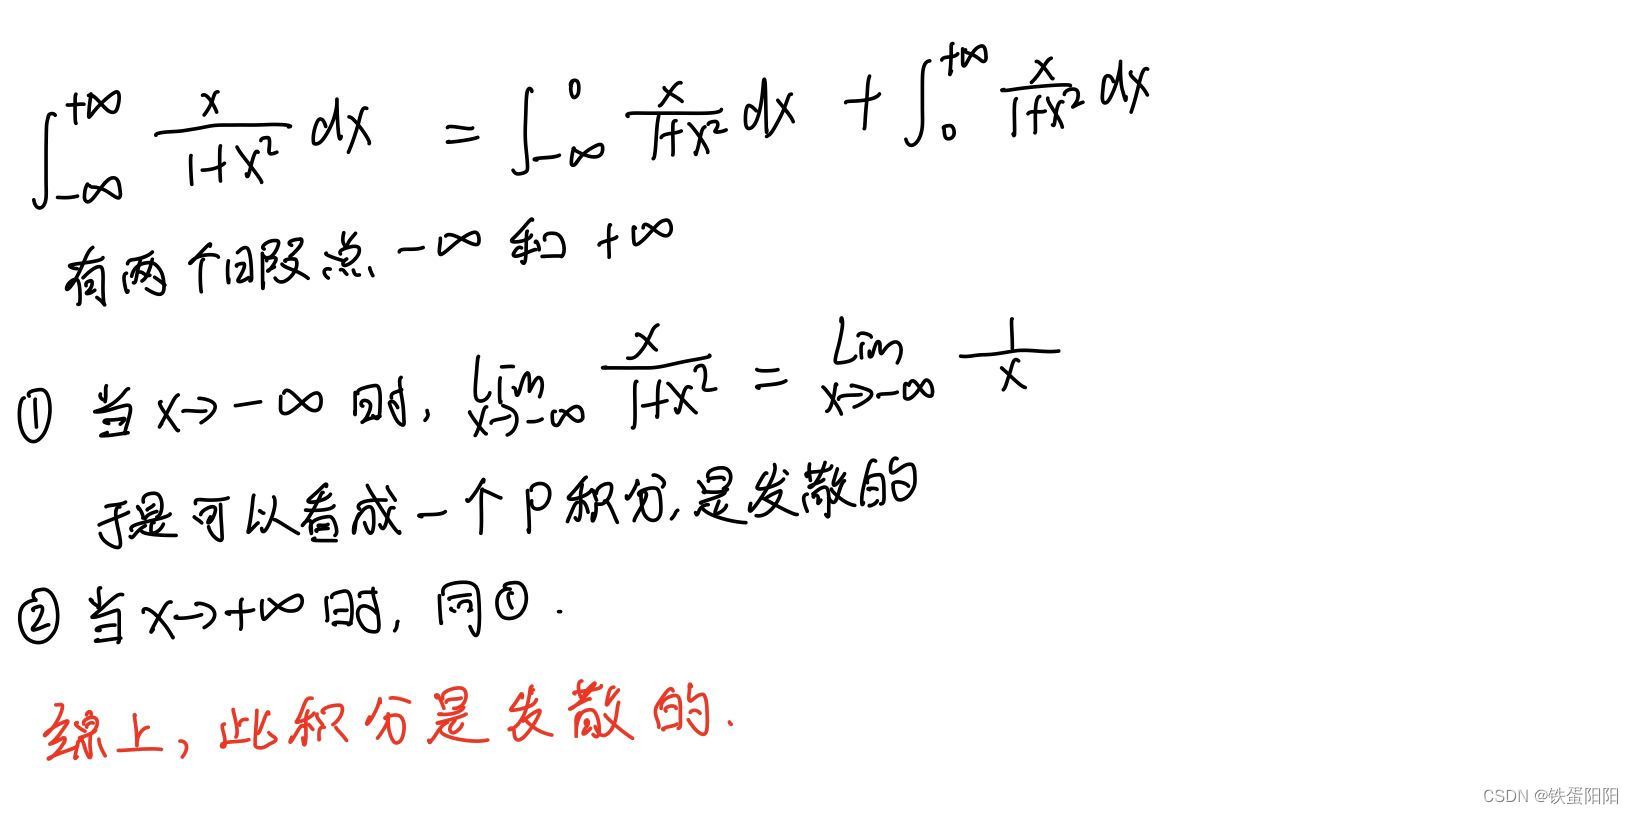 ∫_{-∞}^{+∞} x/(1+x²) dx = ∫_{-∞}^{0} x/(1+x²) dx + ∫_{0}^{+∞} x/(1+x²) dx
有两个旧段点 -∞ 和 +∞
① 当 x→-∞ 时, lim_{x→-∞} x/(1+x²) = lim_{x→-∞} 1/x
于是可以看成一个 P 积分, 是发散的
② 当 x→+∞ 时, 同①.
综上, 此积分是发散的.
CSDN @铁蛋阳阳